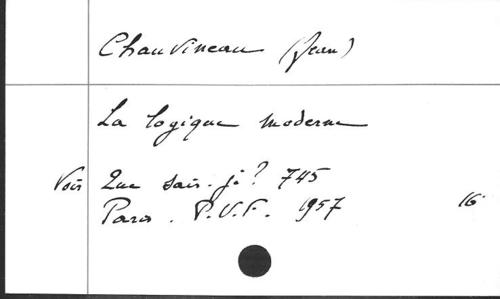 Chauvineau (Jean)
La logique moderne
Voir Que sais-je? 745
Paris. P.U.F. 1957 16